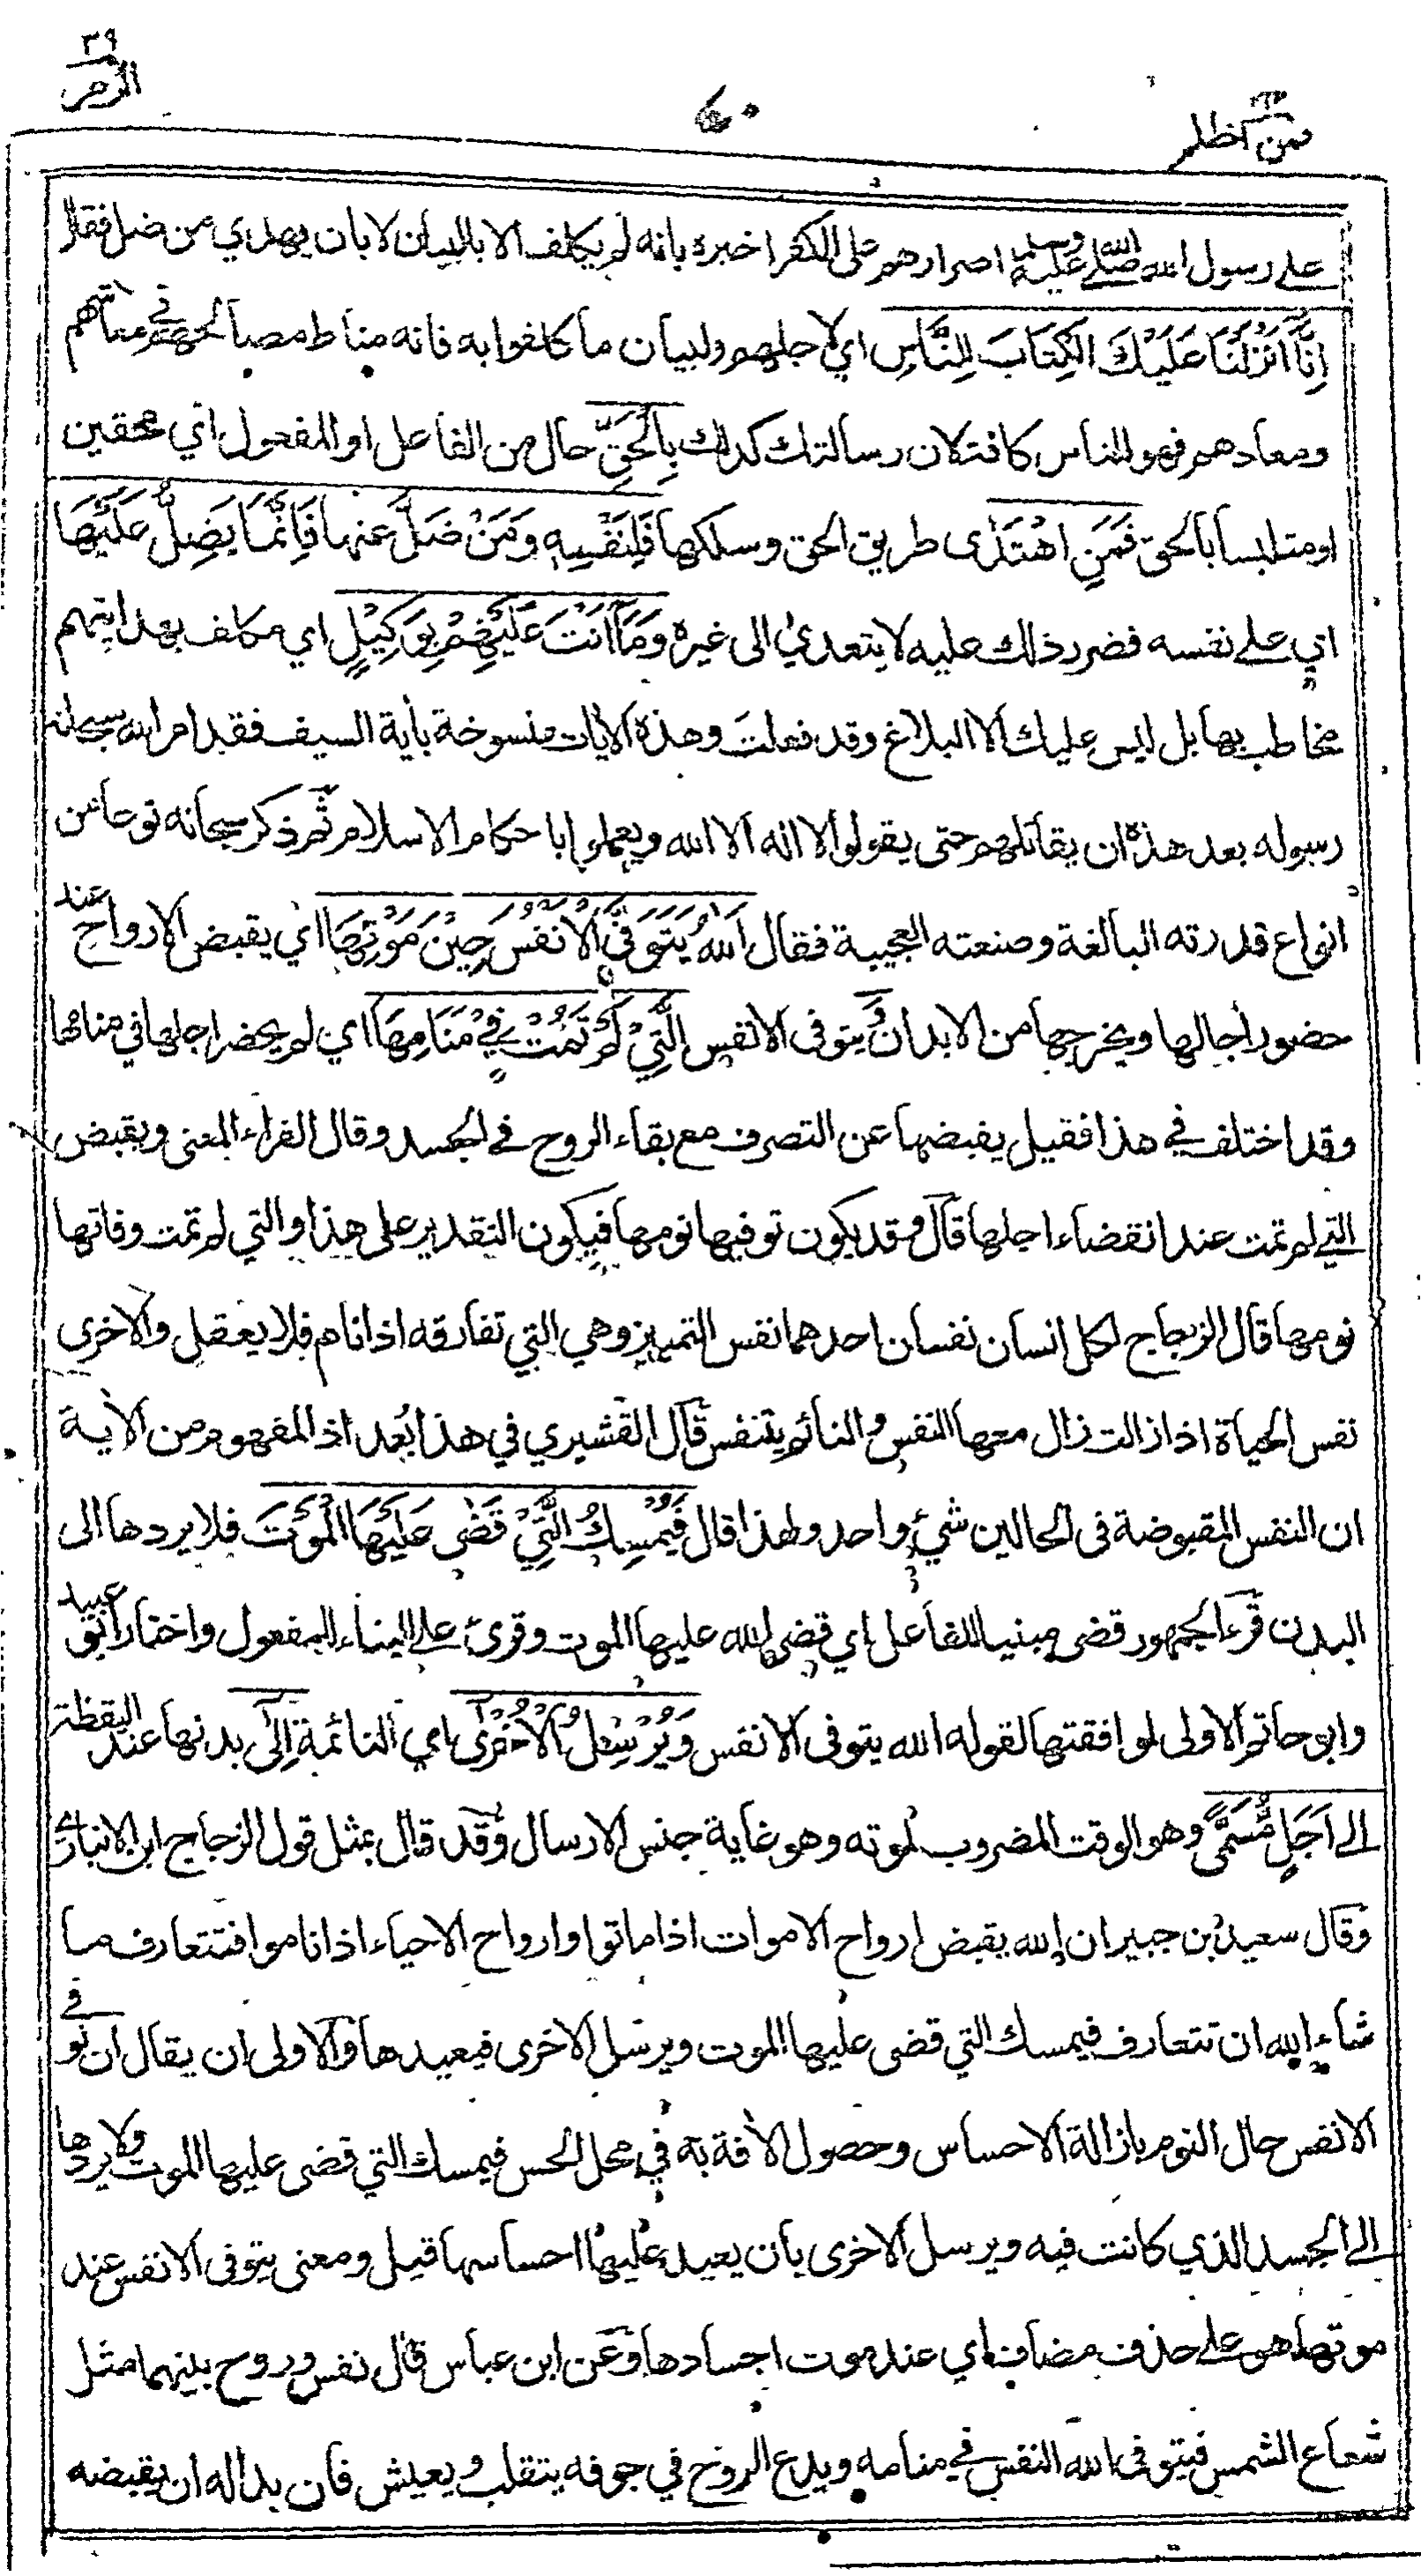 ٣٩
الزمر
٤٠
فمن اظلم
على رسول الله صلى الله عليه وسلم اصرارهم على الكفر اخبره بانه لم يكلف الا بالبيان لا بان يهدي من ضل فقال
اِنَّا اَنْزَلْنَا عَلَيْكَ الْكِتَابَ لِلنَّاسِ اي لاجلهم ولبيان ما كلفوا به فانه مناط مصالحهم في معاشهم
ومعادهم فهو للناس كافة لان رسالتك كذلك بِالْحَقِّ حال من الفاعل او المفعول اي محقين
او متلبسا بالحق فَمَنِ اهْتَدٰى طريق الحق وسلكها فَلِنَفْسِهٖ وَمَنْ ضَلَّ عنها فَاِنَّمَا يَضِلُّ عَلَيْهَا
اي على نفسه فضرر ذلك عليه لا يتعدي الى غيره وَمَآ اَنْتَ عَلَيْهِمْ بِوَكِيْلٍ اي مكلف بهدايتهم
مخاطب بها بل ليس عليك الا البلاغ وقد فعلت وهذه الآيات منسوخة بأية السيف فقد امر الله سبحانه
رسوله بعد هذه ان يقاتلهم حتى يقولوا لا اله الا الله ويعملوا باحكام الاسلام ثم ذكر سبحانه نوعا من
انواع قدرته البالغة وصنعته العجيبة فقال اَللهُ يَتَوَفَّى الْاَنْفُسَ حِيْنَ مَوْتِهَا اي يقبض الارواح عند
حضور اجالها ويخرجها من الابدان وَ يتوفى الانفس الَّتِيْ لَمْ تَمُتْ فِيْ مَنَامِهَا اي لم يحضر اجلها في منامها
وقد اختلف في هذا فقيل يقبضها عن التصرف مع بقاء الروح في الجسد وقال الفراء المعنى ويقبض
التي لم تمت عند انقضاء اجلها قال وقد يكون توفيها نومها فيكون التقدير على هذا والتي لم تمت وفاتها
نومها قال الزجاج لكل انسان نفسان احدهما نفس التمييز وهي التي تفارقه اذا نام فلا يعقل والاخرى
نفس الحياة اذا زالت زال معها النفس والنائم يتنفس قال القشيري في هذا بُعد اذ المفهوم من الأية
ان النفس المقبوضة في الحالين شيء واحد ولهذا قال فَيُمْسِكُ الَّتِيْ قَضٰى عَلَيْهَا الْمَوْتَ فلا يردها الى
البدن قرء الجمهور قضى مبنيا للفاعل اي قضى الله عليها الموت وقرئ على البناء للمفعول واختار ابو عبيد
وابو حاتم الاولى لموافقتها لقوله الله يتوفى الانفس وَيُرْسِلُ الْاُخْرٰى اي النائمة اِلٰى بدنها عند اليقظة
الى اَجَلٍ مُّسَمًّى وهو الوقت المضروب لموته وهو غاية جنس الارسال وقد قال بمثل قول الزجاج ابن الانباري
وقال سعيد بن جبير ان الله يقبض ارواح الاموات اذا ماتوا وارواح الاحياء اذا ناموا فتتعارف ما
شاء الله ان تتعارف فيمسك التي قضى عليها الموت ويرسل الاخرى فيعيدها والاولى ان يقال ان توفي
الانفس حال النوم بازالة الاحساس وحصول الافة به في محل الحس فيمسك التي قضى عليها الموت ولا يردها
الى الجسد الذي كانت فيه ويرسل الاخرى بان يعيد عليها احساسها قيل ومعنى يتوفى الانفس عند
موتها هو على حذف مضاف اي عند موت اجسادها وعن ابن عباس قال نفس وروح بينهما مثل
شعاع الشمس فيتوفى الله النفس في منامه ويدع الروح في جوفه يتقلب ويعيش فان بدا له ان يقبضه